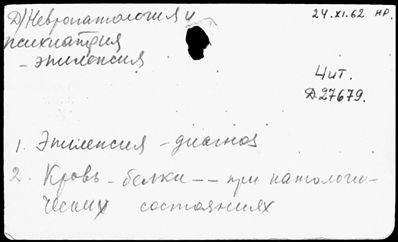 Д) Невропатология и
психиатрия
- эпилепсия
24.XI.62 нр.
Чит.
Д27679.
1. Эпилепсия - диагноз
2. Кровь - белки -- при патологи-
ческих состояниях